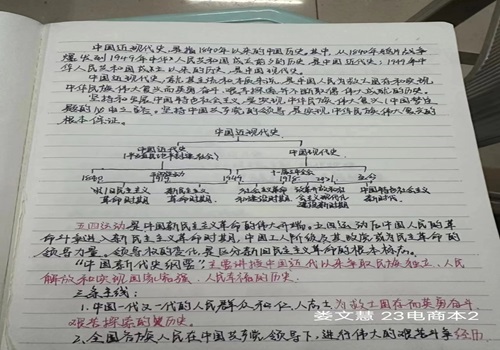 中国近现代史,是指1840年以来的中国历史。其中,从1840年鸦片战争
爆发到1949年中华人民共和国成立前夕的历史,是中国近代史;1949年中
华人民共和国成立以来的历史,是中国现代史。
中国近现代史,就其主流和本质来说,是中国人民为救亡图存和实现
中华民族伟大复兴而英勇奋斗、艰辛探索并不断取得伟大成就的历史。
坚持和发展中国特色社会主义,是实现中华民族伟大复兴
坚持中国共产党的领导是实现中华民族伟大复兴的
根本保证。
中国近现代史
中国近代史 中国现代史
1840 1919 1949 1978
旧民主主义 新民主主义 社会主义革命 改革开放和 中国特色社会主义
革命时期 革命时期 和建设时期
五四运动是中国新民主主义革命的伟大开端。五四运动后中国人民的革
命斗争进入新民主主义革命时期,中国工人阶级及其政党成为民主革命的
领导力量。领导权的变化,是区分新旧民主主义革命的根本标志。
"中国近现代史纲要"主要讲授中国近代以来争取民族独立、人民
解放和实现国家富强、人民幸福的历史。
三条主线:
1.中国一代又一代的人民群众和仁人志士为救亡图存而英勇奋斗
艰苦探索的历史。
2.全国各族人民在中国共产党领导下,进行伟大的艰苦斗争经历
娄文慧 23电商本2